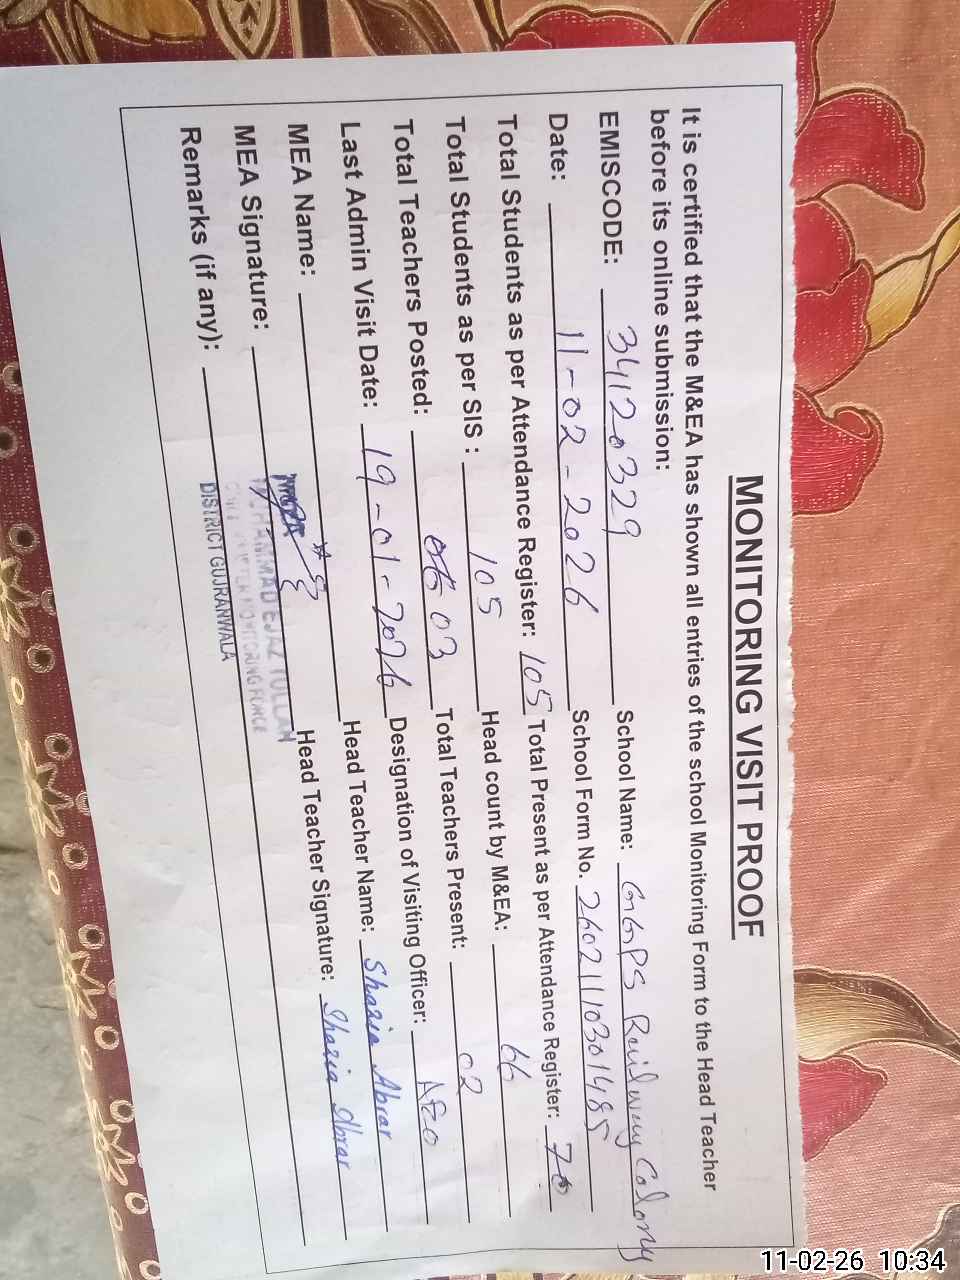 MONITORING VISIT PROOF
It is certified that the M&EA has shown all entries of the school Monitoring Form to the Head Teacher
before its online submission:
EMISCODE: 34120329 School Name: GGPS Railway Colony
Date: 11-02-2026 School Form No. 26021110301485
Total Students as per Attendance Register: 105 Total Present as per Attendance Register: 70
Total Students as per SIS : 105 Head count by M&EA: 66
Total Teachers Posted: 03 Total Teachers Present: 02
Last Admin Visit Date: 19-01-2026 Designation of Visiting Officer: AEO
MEA Name: Head Teacher Name: Shazia Abrar
MEA Signature: Head Teacher Signature: Shazia Abrar
MUHAMMAD EJAZ TULLAH
MONITORING FORCE
DISTRICT GUJRANWALA
Remarks (if any):
11-02-26 10:34